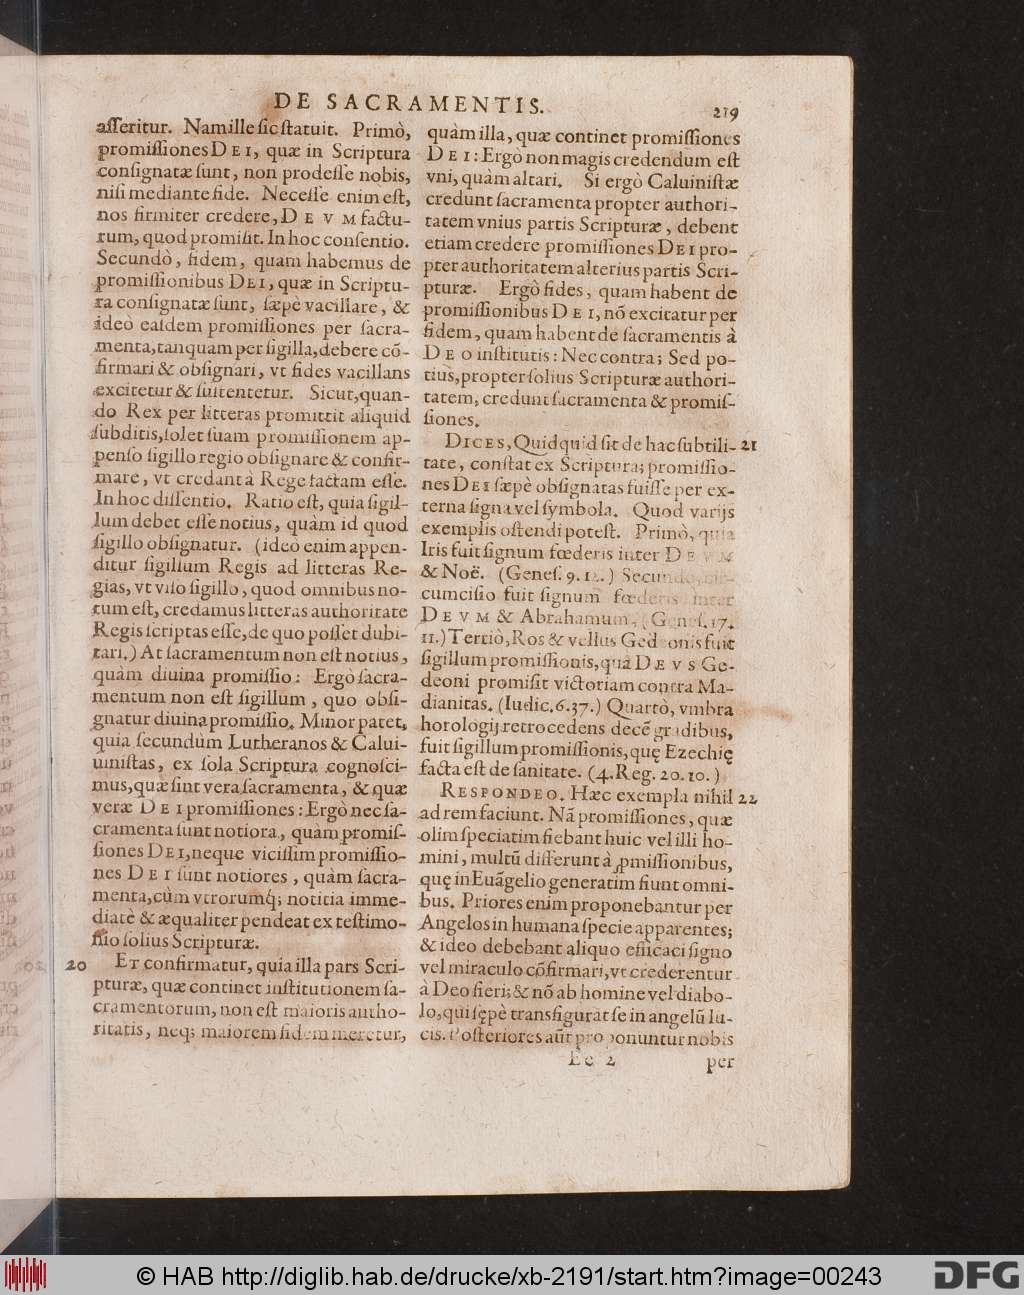 DE SACRAMENTIS.
219
asseritur. Nam ille sic statuit. Primò,
promissiones DEI, quæ in Scriptura
consignatæ sunt, non prodesse nobis,
nisi mediante fide. Necesse enim est,
nos firmiter credere, DEVM factu-
rum, quod promisit. In hoc consentio.
Secundò, fidem, quam habemus de
promissionibus DEI, quæ in Scriptu-
ra consignatæ sunt, sæpè vacillare, &
ideò easdem promissiones per sacra-
menta, tanquam per sigilla, debere cō-
firmari & obsignari, vt fides vacillans
excitetur & sustentetur. Sicut, quan-
do Rex per litteras promittit aliquid
subditis, solet suam promissionem ap-
penso sigillo regio obsignare & confir-
mare, vt credant à Rege factam esse.
In hoc dissentio. Ratio est, quia sigil-
lum debet esse notius, quàm id quod
sigillo obsignatur. (ideo enim appen-
ditur sigillum Regis ad litteras Re-
gias, vt viso sigillo, quod omnibus no-
tum est, credamus litteras authoritate
Regis scriptas esse, de quo posset dubi-
tari.) At sacramentum non est notius,
quàm diuina promissio: Ergò sacra-
mentum non est sigillum, quo obsi-
gnatur diuina promissio. Minor patet,
quia secundùm Lutheranos & Calui-
uinistas, ex sola Scriptura cognosci-
mus, quæ sint vera sacramenta, & quæ
veræ DEI promissiones: Ergò nec sa-
cramenta sunt notiora, quàm promis-
siones DEI, neque vicissim promissio-
nes DEI sunt notiores, quàm sacra-
menta, cùm vtrorumq́; notitia imme-
diatè & æqualiter pendeat ex testimo-
nio solius Scripturæ.
20 ET confirmatur, quia illa pars Scri-
pturæ, quæ continet institutionem sa-
cramentorum, non est maioris autho-
ritatis, neq; maiorem fidem meretur,
quàm illa, quæ continet promissiones
DEI: Ergò non magis credendum est
vni, quàm alteri. Si ergò Caluinistæ
credunt sacramenta propter authori-
tatem vnius partis Scripturæ, debent
etiam credere promissiones DEI pro-
pter authoritatem alterius partis Scri-
pturæ. Ergò fides, quam habent de
promissionibus DEI, nō excitatur per
fidem, quam habent de sacramentis à
DEO institutis: Nec contra; Sed po-
tiùs, propter solius Scripturæ authori-
tatem, credunt sacramenta & promis-
siones.
DICES, Quidquid sit de hac subtili- 21
tate, constat ex Scriptura; promissio-
nes DEI sæpè obsignatas fuisse per ex-
terna signa vel symbola. Quod varijs
exemplis ostendi potest. Primò, quia
Iris fuit signum fœderis inter DEVM
& Noë. (Genes. 9. 12.) Secundò, cir-
cumcisio fuit signum fœderis inter
DEVM & Abrahamum, (Genes. 17.
11.) Tertiò, Ros & vellus Gedeonis fuit
sigillum promissionis, quâ DEVS Ge-
deoni promisit victoriam contra Ma-
dianitas. (Iudic. 6. 37.) Quartò, vmbra
horologij retrocedens decē gradibus,
fuit sigillum promissionis, quę Ezechię
facta est de sanitate. (4. Reg. 20. 10.)
RESPONDEO. Hæc exempla nihil 22
ad rem faciunt. Nā promissiones, quæ
olim speciatim fiebant huic vel illi ho-
mini, multū differunt à ꝓmissionibus,
quę in Euāgelio generatim fiunt omni-
bus. Priores enim proponebantur per
Angelos in humana specie apparentes;
& ideo debebant aliquo efficaci signo
vel miraculo cōfirmari, vt crederentur
à Deo fieri; & nō ab homine vel diabo-
lo, qui sępè transfigurat se in angelū lu-
cis. Posteriores aūt proponuntur nobis
Ee 2
per
© HAB http://diglib.hab.de/drucke/xb-2191/start.htm?image=00243
DFG